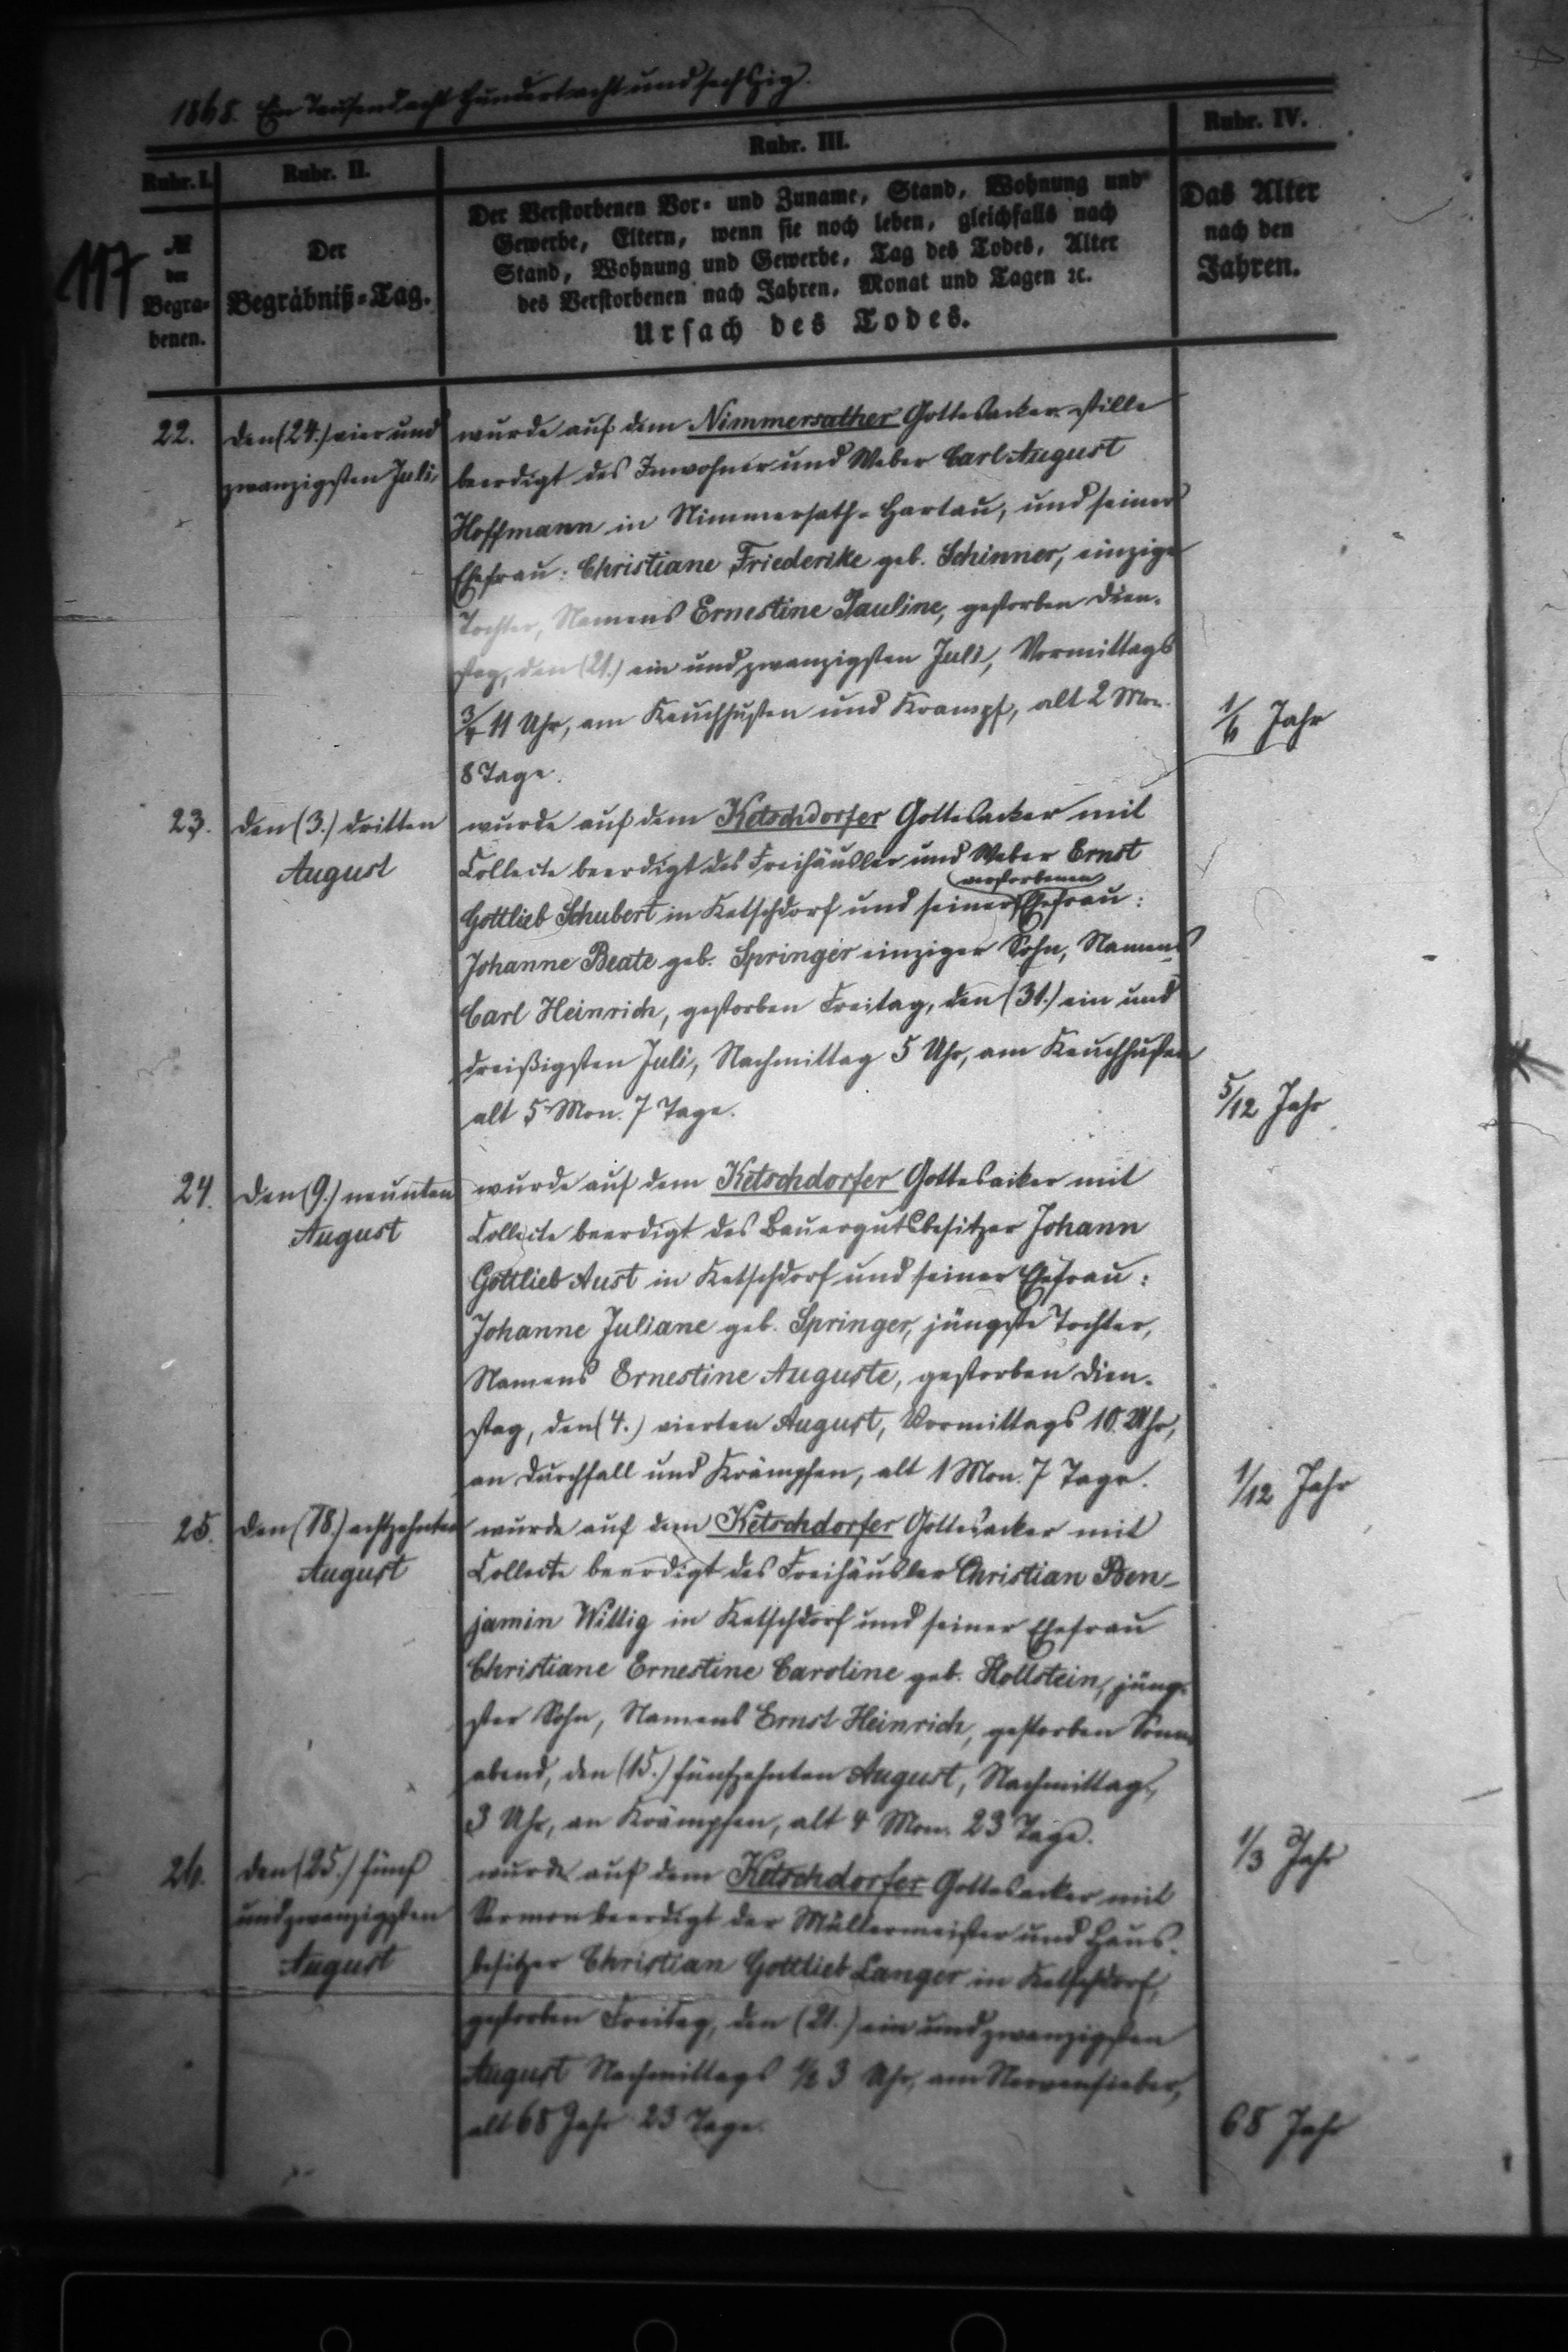 1868. Ein Tausend acht Hundert acht und sechszig.
Rubr. I.
Rubr. II.
Rubr. III.
Rubr. IV.
117
№
der
Begra-
benen.
Der
Begräbniß-Tag.
Der Verstorbenen Vor- und Zuname, Stand, Wohnung und
Gewerbe, Eltern, wenn sie noch leben, gleichfalls nach
Stand, Wohnung und Gewerbe, Tag des Todes, Alter
des Verstorbenen nach Jahren, Monat und Tagen ꝛc.
Ursach des Todes.
Das Alter
nach den
Jahren.
22.
den (24.) vier und
zwanzigsten Juli,
wurde auf dem Nimmersather Gottesacker stille
beerdigt des Inwohner und Weber Carl August
Hoffmann in Nimmersath-Hartau, und seiner
Ehefrau: Christiane Friederike geb. Schinner, einzige
Tochter, Namens Ernestine Pauline, gestorben Dien-
stag, den (21.) ein und zwanzigsten Juli, Vormittags
3/4 11 Uhr, am Keuchhusten und Krampf, alt 2 Mon.
8 Tage.
1/6 Jahr
23.
den (3.) dritten
August
wurde auf dem Ketschdorfer Gottesacker mit
Collecte beerdigt des Freihäusler und Weber Ernst
verstorbenen
Gottlieb Schubert in Ketschdorf und seiner Ehefrau:
Johanne Beate geb. Springer einziger Sohn, Namens
Carl Heinrich, gestorben Freitag, den (31.) ein und
dreißigsten Juli, Nachmittag 5 Uhr, am Keuchhusten
alt 5 Mon. 7 Tage.
5/12 Jahr
24.
den (9.) neunten
August
wurde auf dem Ketschdorfer Gottesacker mit
Collecte beerdigt des Bauergutsbesitzer Johann
Gottlieb Aust in Ketschdorf und seiner Ehefrau:
Johanne Juliane geb. Springer, jüngste Tochter,
Namens Ernestine Auguste, gestorben Dien-
stag, den (4.) vierten August, Vormittags 10 Uhr,
an Durchfall und Krämpfen, alt 1 Mon. 7 Tage.
1/12 Jahr
25.
den (18.) achtzehnten
August
wurde auf dem Ketschdorfer Gottesacker mit
Collecte beerdigt des Freihäusler Christian Ben-
jamin Wittig in Ketschdorf und seiner Ehefrau
Christiane Ernestine Caroline geb. Hollstein, jüng-
ster Sohn, Namens Ernst Heinrich, gestorben Sonn-
abend, den (15.) fünfzehnten August, Nachmittags,
3 Uhr, an Krämpfen, alt 4 Mon. 23 Tage.
1/3 Jahr
26.
den (25.) fünf
und zwanzigsten
August
wurde auf dem Ketschdorfer Gottesacker mit
Sermon beerdigt der Müllermeister und Haus-
besitzer Christian Gottlieb Langer in Ketschdorf,
gestorben Freitag, den (21.) ein und zwanzigsten
August Nachmittags 1/2 3 Uhr, am Nervenfieber,
alt 68 Jahr 23 Tage.
68 Jahr